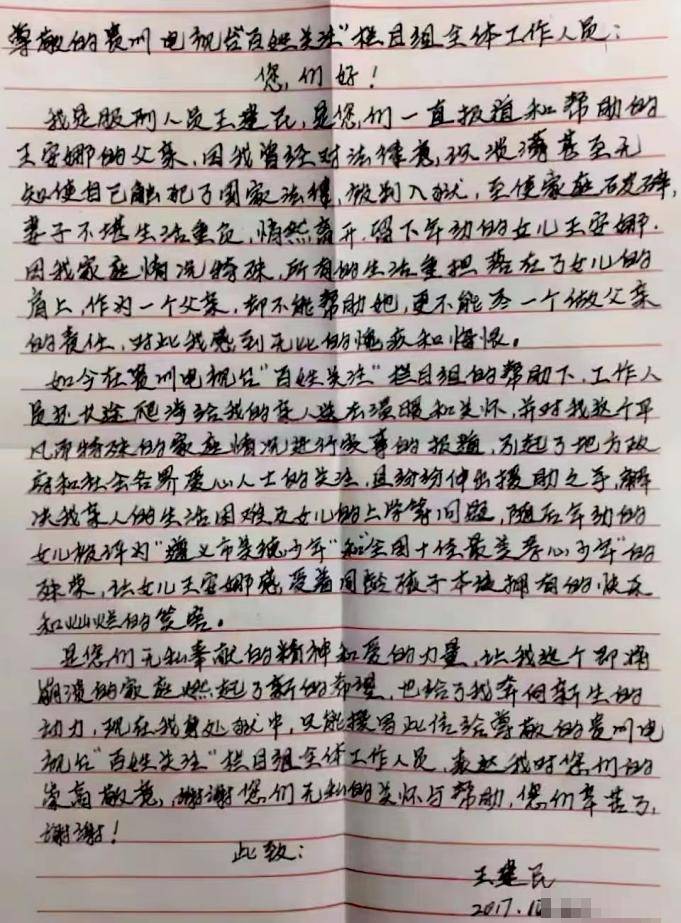 尊敬的贵州电视台"百姓关注"栏目组全体工作人员：
您们好！
我是服刑人员王建民，是您们一直报道和帮助的
王安娜的父亲，因我曾经对法律意识淡薄甚至无
知使自己触犯了国家法律，被判入狱，至使家庭破碎，
妻子不堪生活重负，悄然离开，留下年幼的女儿王安娜.
因我家庭情况特殊，所有的生活重担落在了女儿的
肩上，作为一个父亲，却不能帮助她，更不能尽一个做父亲
的责任，对此我感到无比的愧疚和悔恨。
如今在贵州电视台"百姓关注"栏目组的帮助下，工作人
员长途爬涉给我的家人送去温暖和关怀，并对我这个平
凡而特殊的家庭情况进行故事的报道，引起了地方政
府和社会各界爱心人士的关注，且纷纷伸出援助之手，解
决我家人的生活困难及女儿的上学等问题，随后年幼的
女儿被评为"遵义市美德少年"和"全国十佳最美孝心少年"的
殊荣，让女儿王安娜感受着同龄孩子本该拥有的快乐
和灿烂的笑容。
是您们无私奉献的精神和爱的力量，让我这个即将
崩溃的家庭燃起了新的希望，也给了我奔向新生的
动力，现在我身处狱中，只能撰写此信给尊敬的贵州电
视台"百姓关注"栏目组全体工作人员，表达我对您们的
崇高敬意，谢谢您们无私的关怀与帮助，您们辛苦了，
谢谢！
此致：
王建民
2017.10